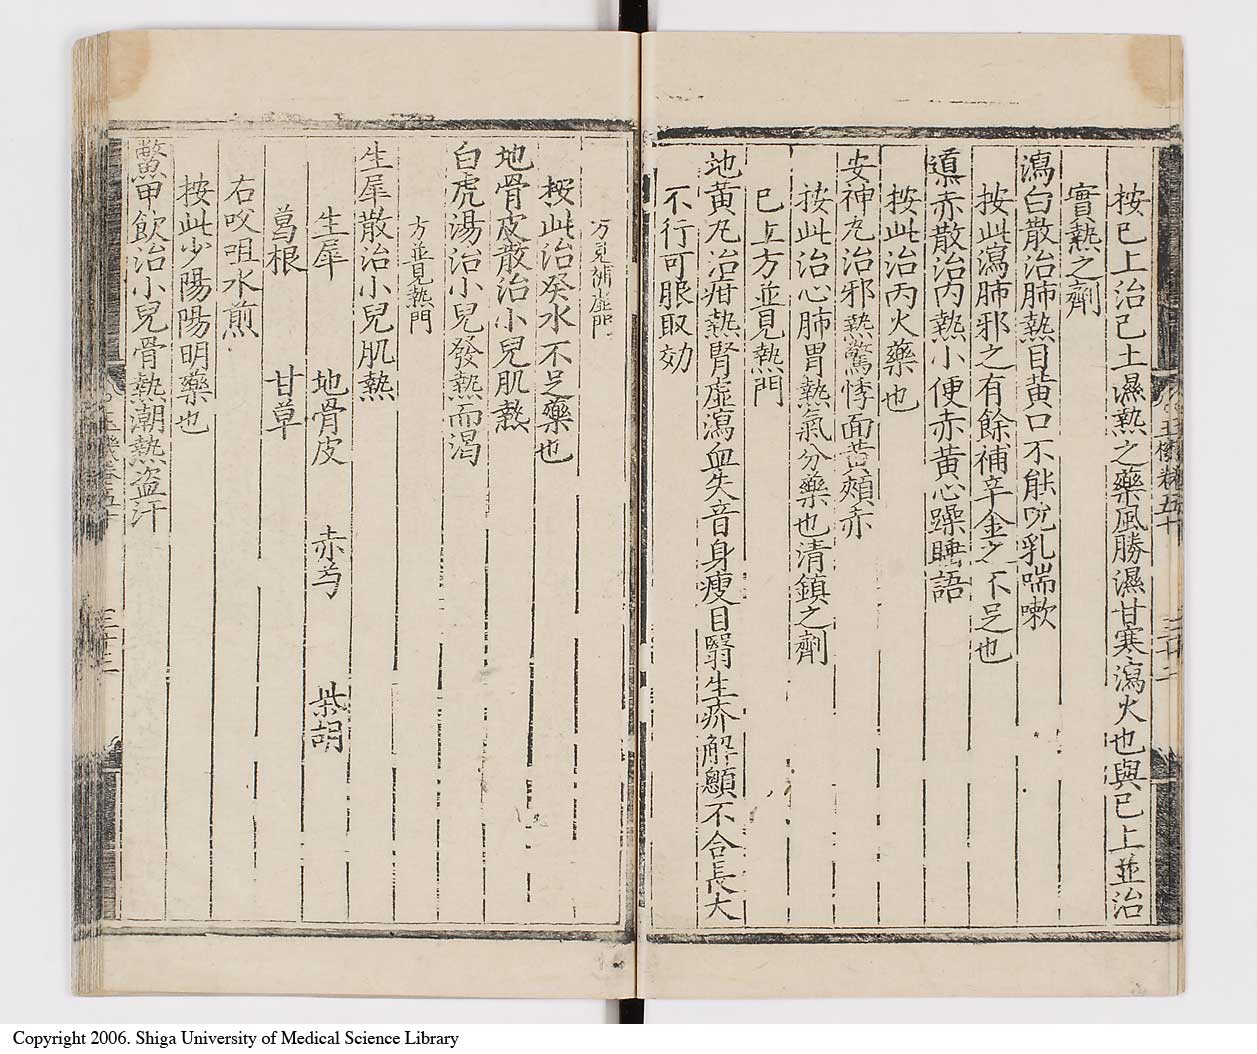 按已上治己土濕熱之藥風勝濕甘寒瀉火也與已上並治
實熱之劑
瀉白散治肺熱目黃口不能吮乳喘嗽
按此瀉肺邪之有餘補辛金之不足也
導赤散治內熱小便赤黃心躁睡語
按此治丙火藥也
安神丸治邪熱驚悸面黃頰赤
按此治心肺胃熱氣分藥也清鎮之劑
已上方並見熱門
地黃丸治疳熱腎虛瀉血失音身瘦目翳生疥解顱不合長大
不行可服取効
方見補虛門
按此治癸水不足藥也
地骨皮散治小兒肌熱
白虎湯治小兒發熱而渴
方並見熱門
生犀散治小兒肌熱
生犀 地骨皮 赤芍 柴胡
葛根 甘草
右㕮咀水煎
按此少陽陽明藥也
鱉甲飲治小兒骨熱潮熱盜汗
Copyright 2006. Shiga University of Medical Science Library